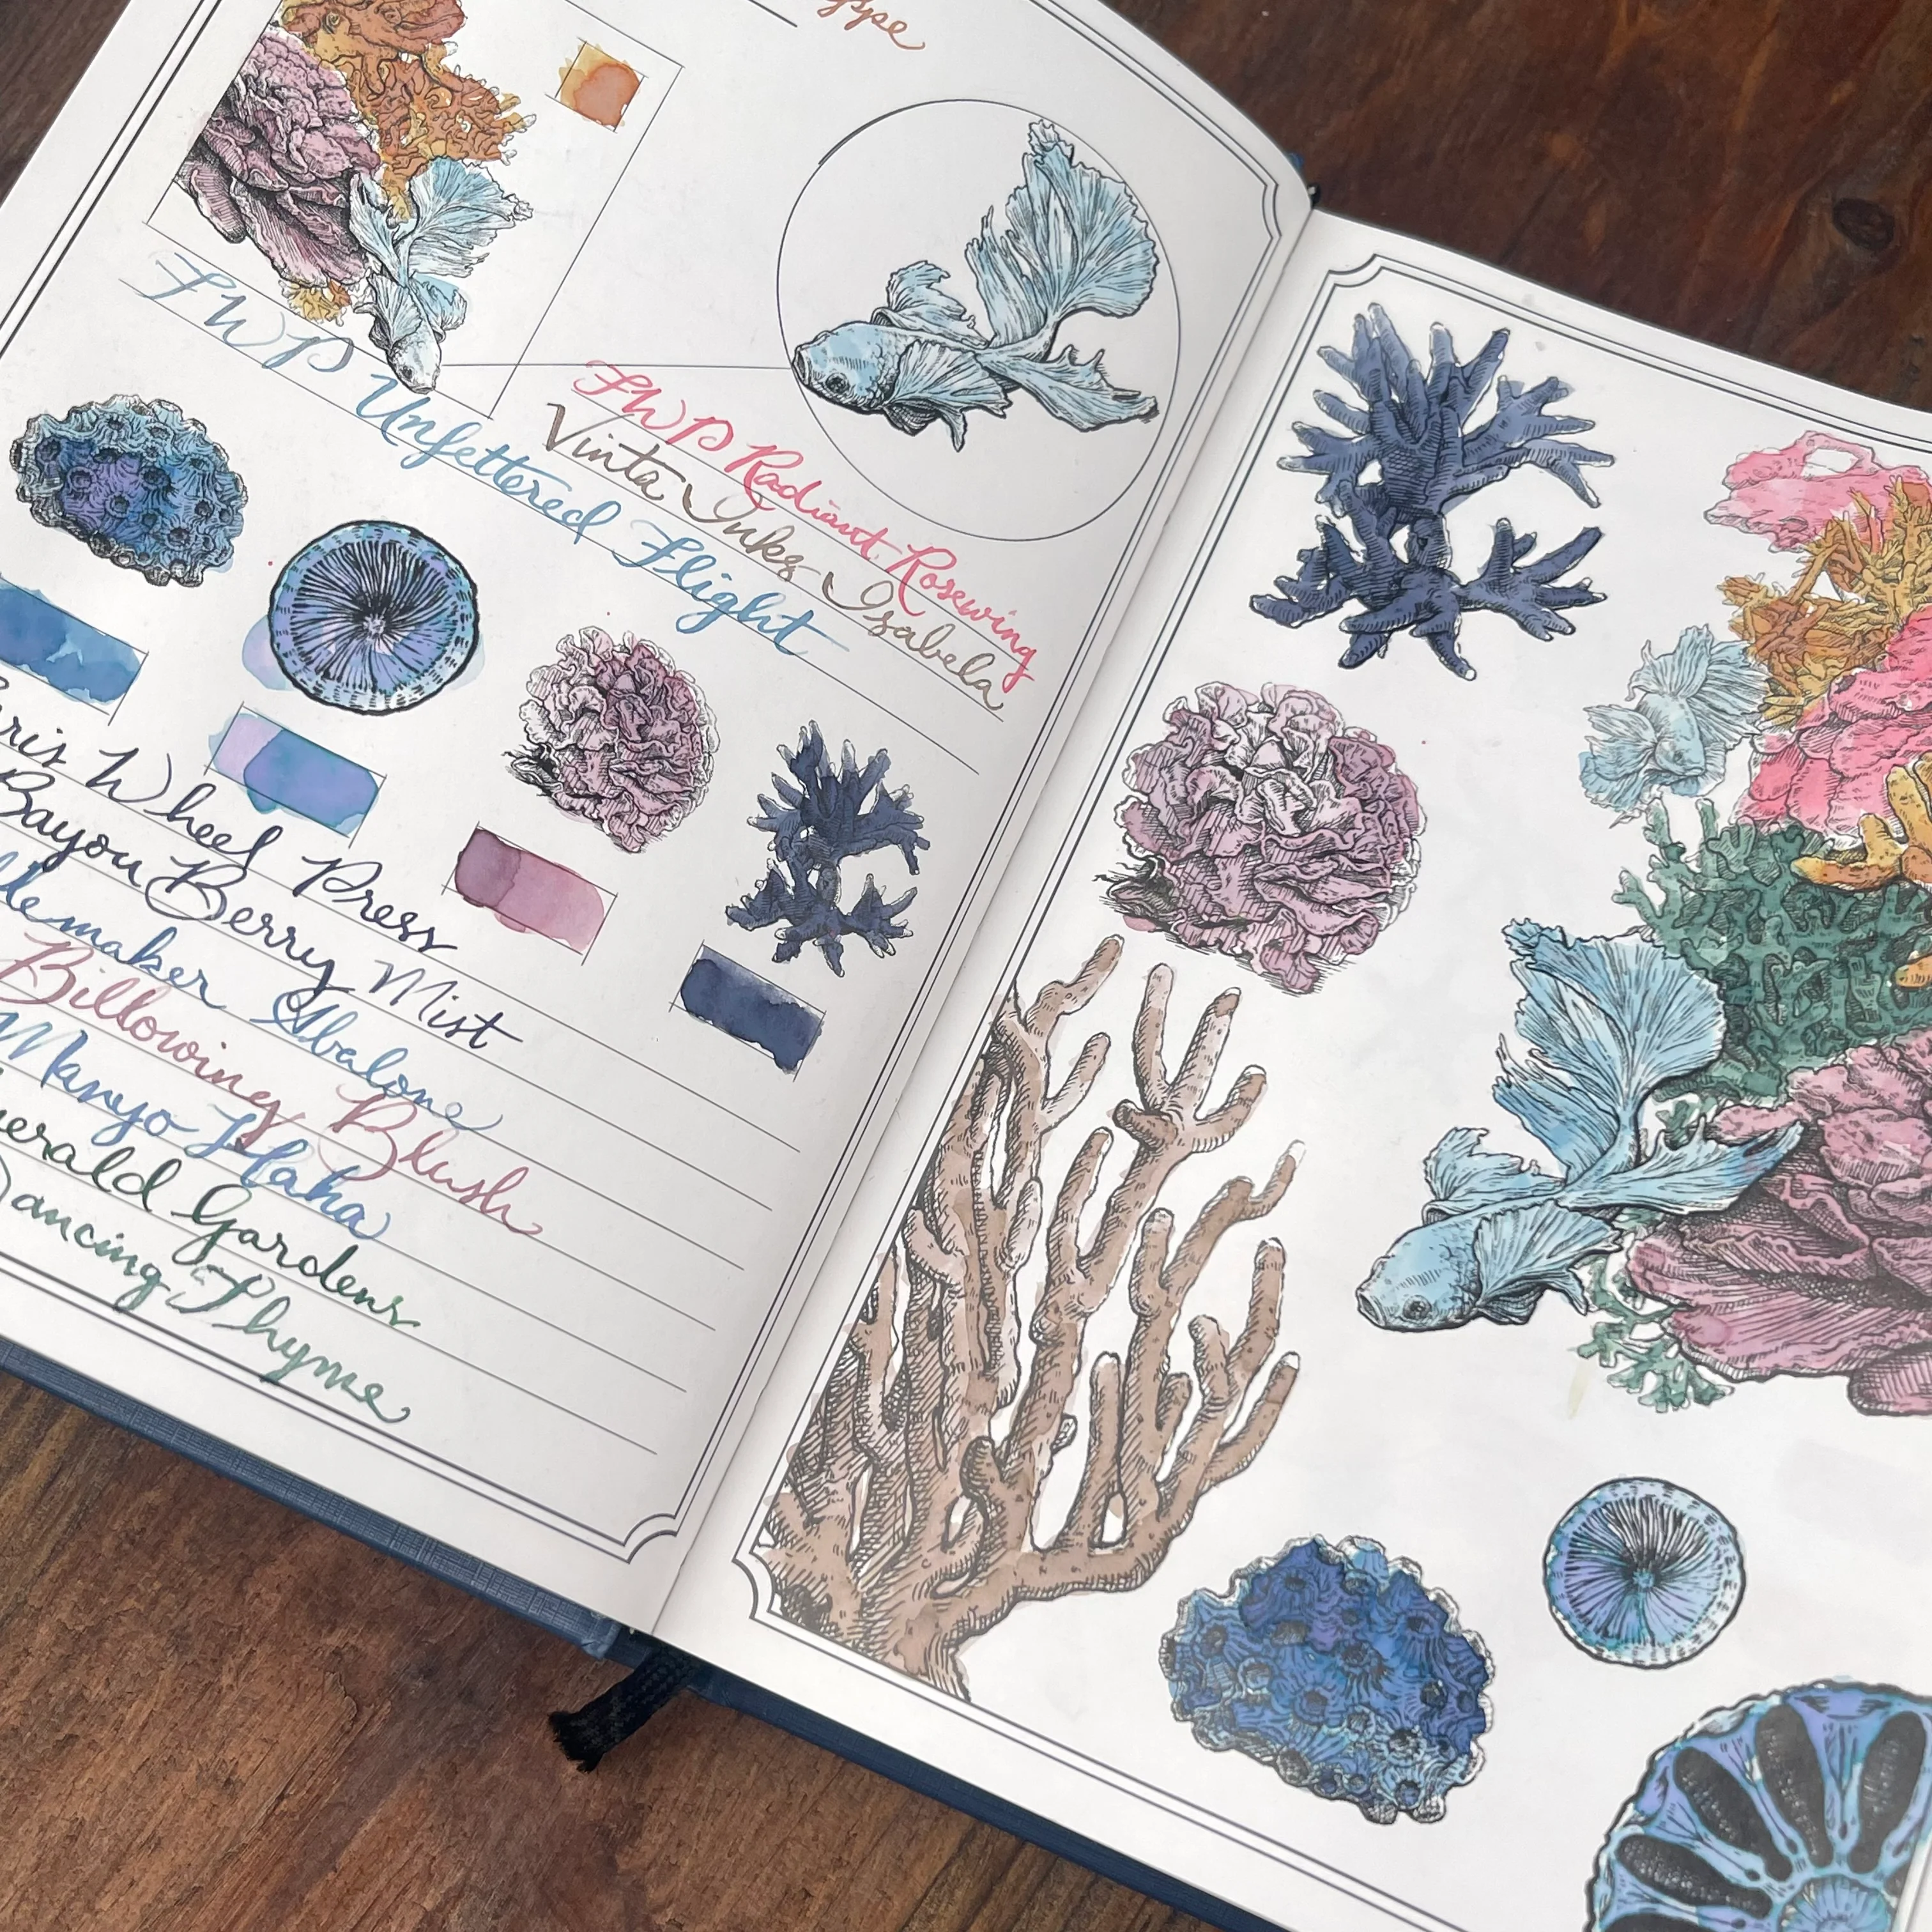 FWP Radiant Rosewing
Vinta Inks Isabela
FWP Unfettered Flight
Wheel Press
Bayou Berry Mist
Abalone
Billowing Blush
Manyo Haha
Gardens
Dancing Thyme